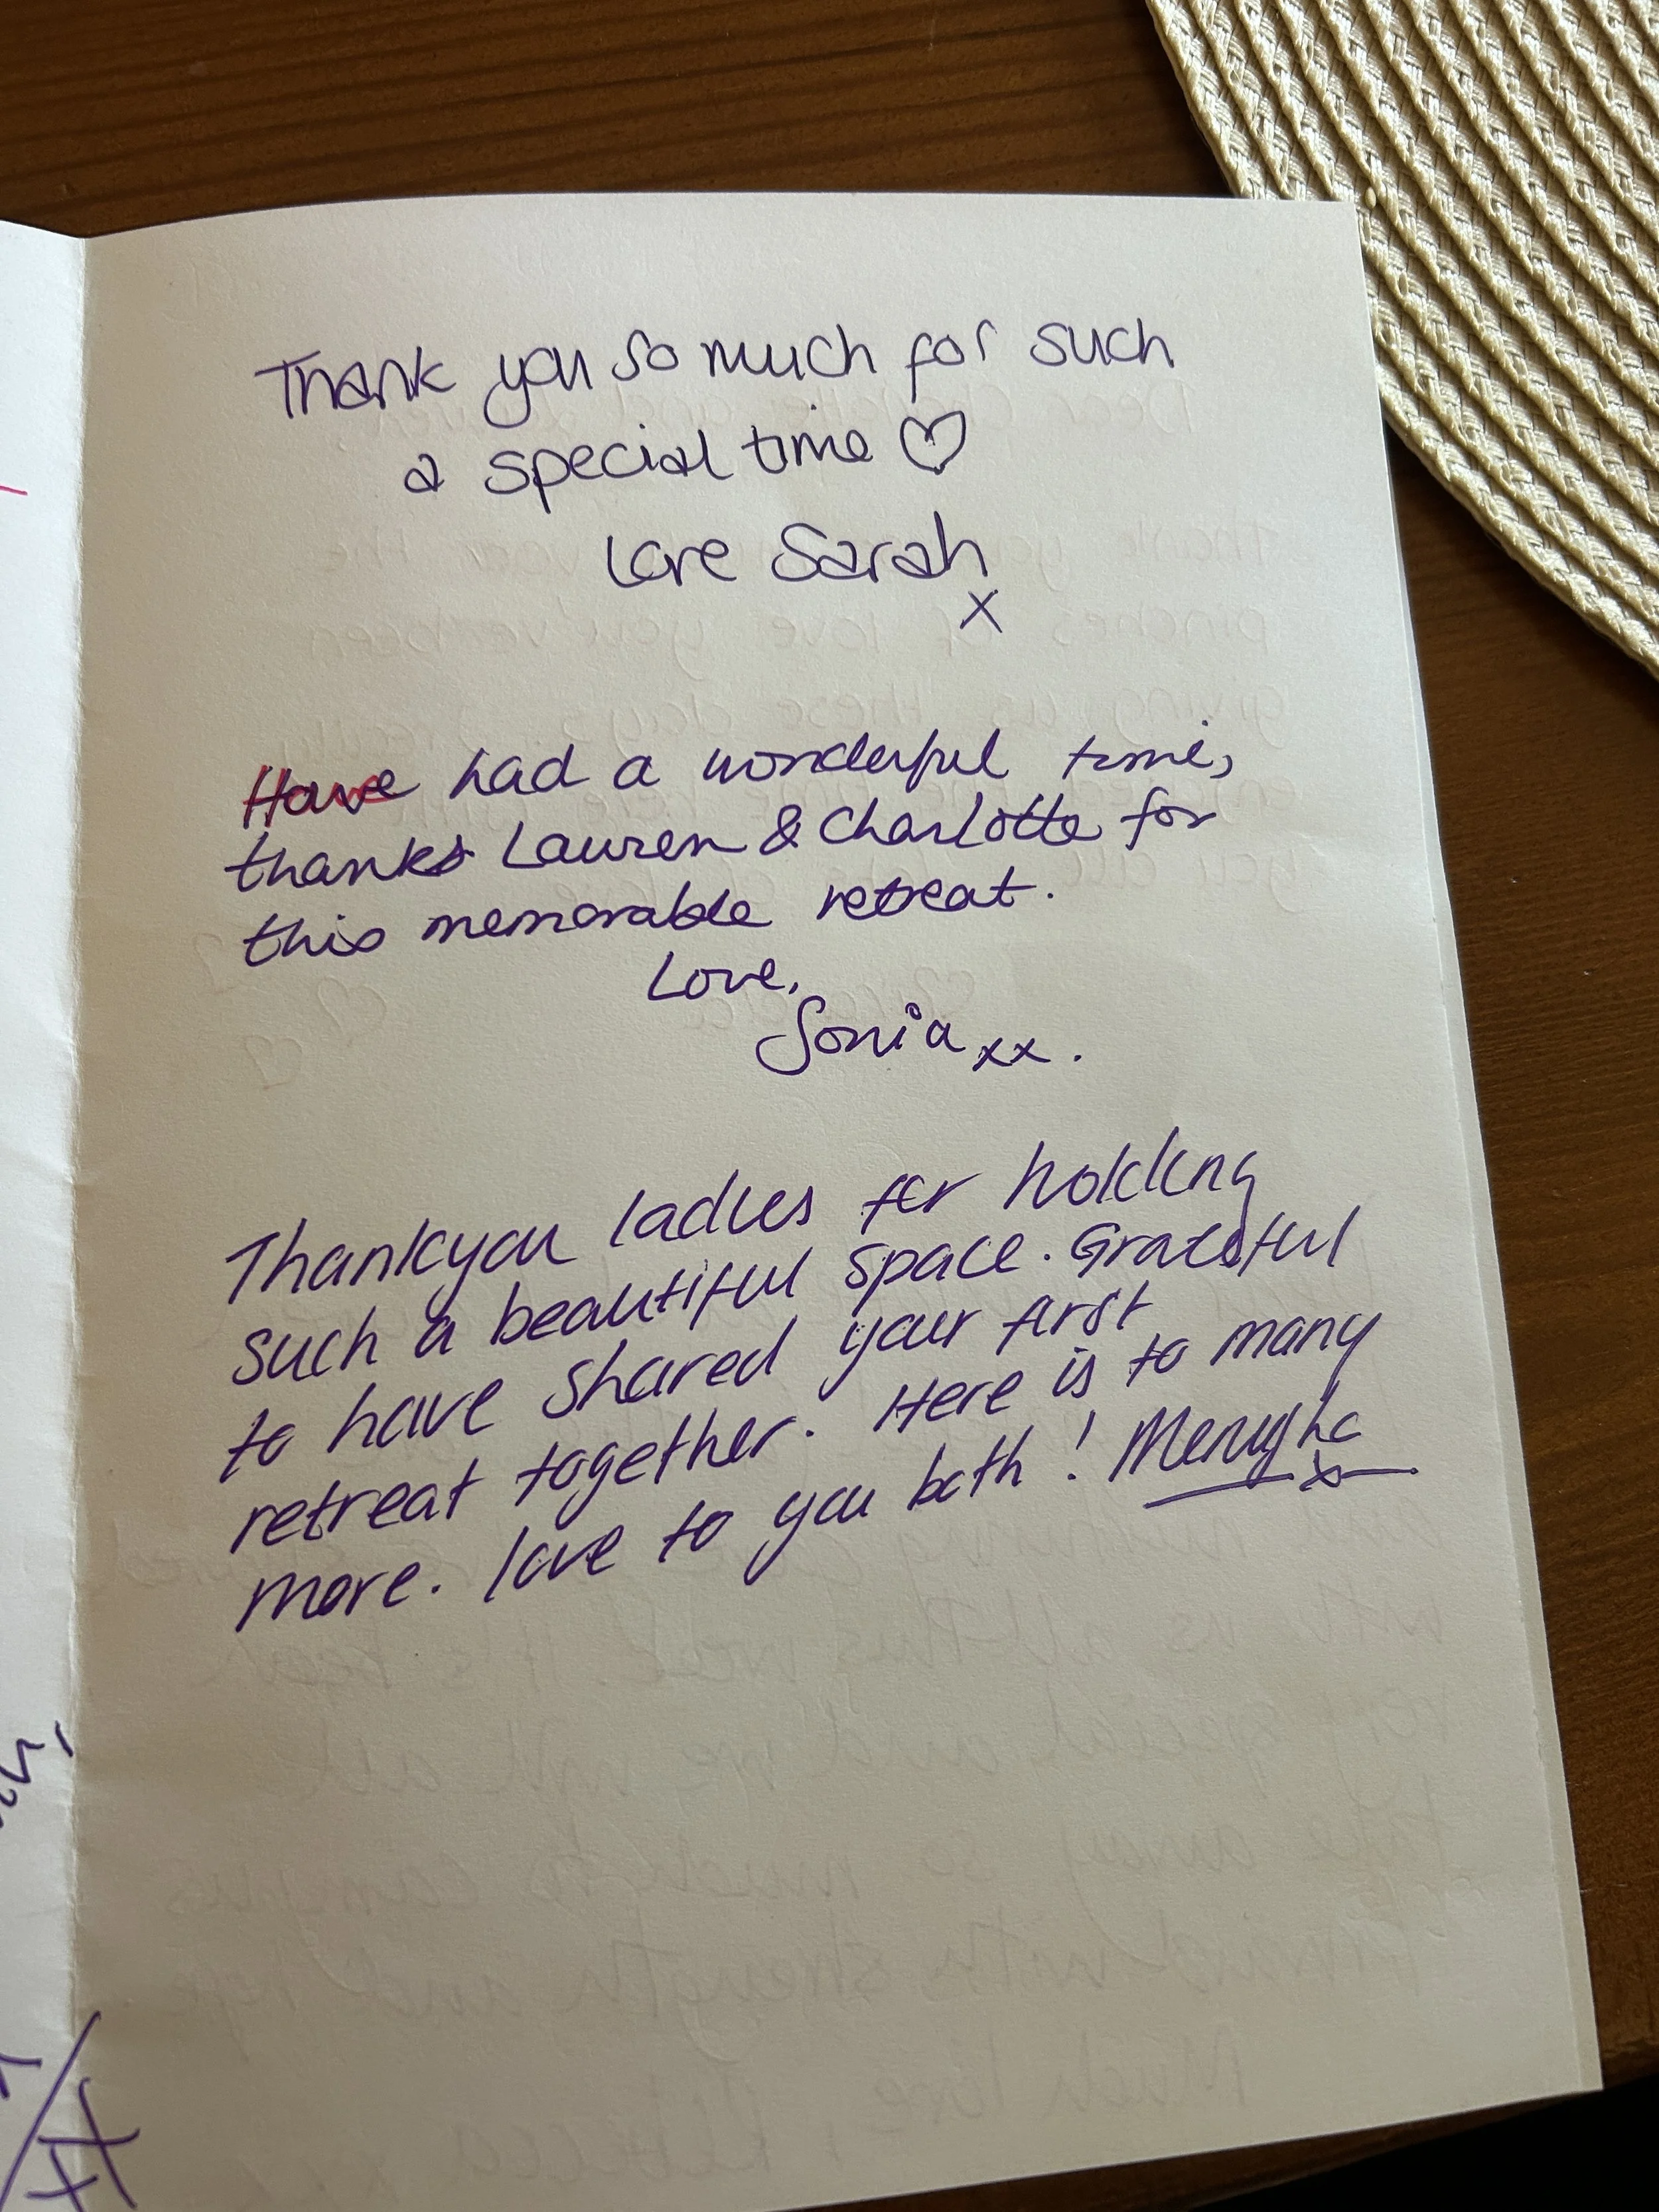 Thank you so much for such
a special time ♡
Love Sarah
x
Have had a wonderful time,
thanks Lauren & Charlotte for
this memorable retreat.
Love,
Sonia xx.
Thankyou ladies for holding
such a beautiful space. Grateful
to have shared your first
retreat together. Here is to many
more. love to you both!
x